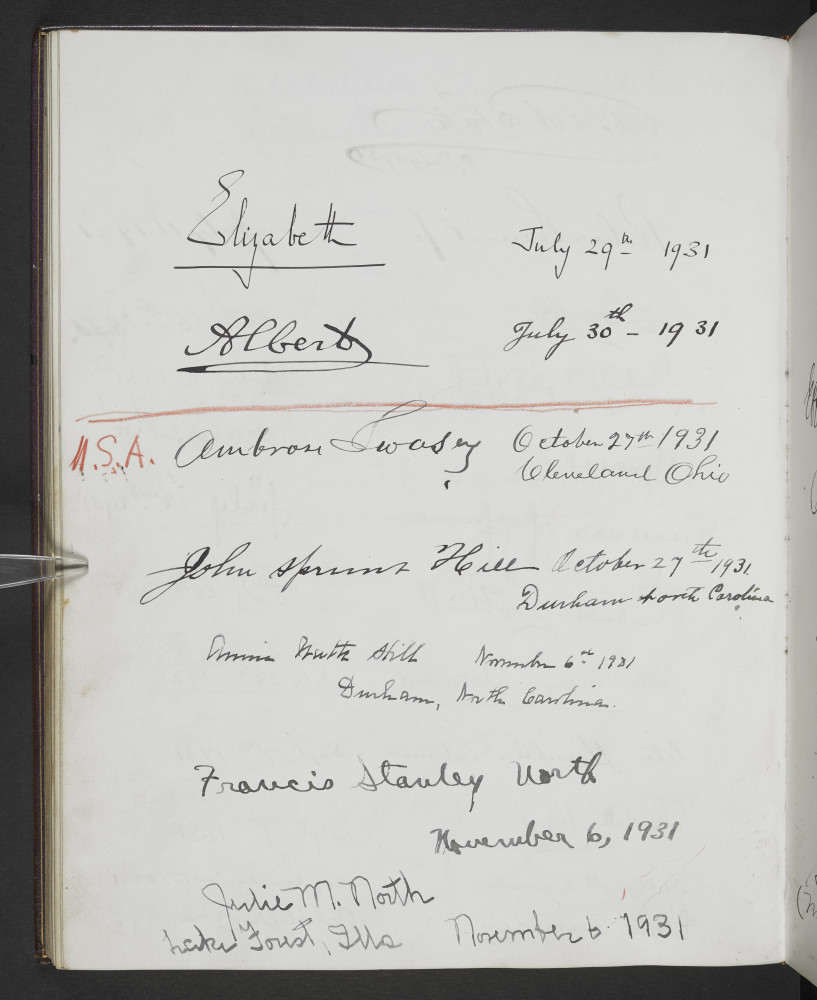 Elizabeth July 29th 1931
Albert July 30th - 1931
U.S.A. Ambrose Swasey October 27th 1931
Cleveland Ohio
John Sprunt Hill October 27th 1931
Durham North Carolina
Annie Watts Hill November 6th 1931
Durham, North Carolina.
Francis Stanley North
November 6, 1931
Julie M. North
Lake Forest, Ills November 6 1931